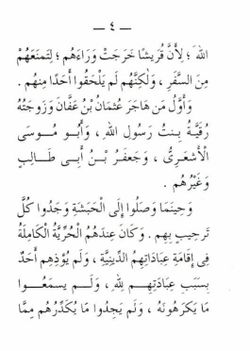 — ٤ —
الله ؛ لِأَنَّ قُرَيْشًا خَرَجَتْ وَرَاءَهُمْ ؛ لِتَمْنَعَهُمْ
مِنَ السَّفَرِ ، وَلٰكِنَّهُمْ لَمْ يَلْحَقُوا أَحَدًا مِنْهُم .
وَأَوَّلُ مَن هَاجَرَ عُثمَانُ بْنُ عَفَّانَ وَزَوْجَتُهُ
رُقَيَّةُ بِنتُ رَسُولِ اللهِ ، وَأَبُو مُوسَى
الْأَشْعَرِىُّ ، وَجَعفَرُ بْنُ أَبِى طَالِبٍ
وَغَيْرُهُم .
وَحِينَمَا وَصَلُوا إِلَى الْحَبَشَةِ وَجَدُوا كُلَّ
تَرحِيبٍ بِهِم . وَكَانَ عِندَهُمُ الْحُرِّيَّةُ الْكَامِلَةُ
فِى إِقَامَةِ عِبَادَاتِهِمُ الدِّينِيَّةِ ، وَلَم يُؤْذِهِم أَحَدٌ
بِسَبَبِ عِبَادَتِهِمْ لِلّٰهِ ، وَلَم يَسمَعُوا
مَا يَكرَهُونَهُ ، وَلَم يَجِدُوا مَا يُكَدِّرُهُم مِمَّا